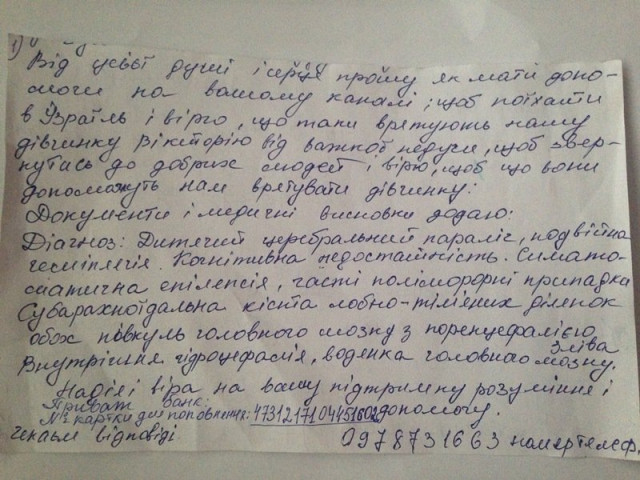 1)
Від усієї душі і серця прошу як мати допо-
моги на вашому каналі, щоб поїхати
в Ізраїль і вірю, що таки врятують нашу
дівчинку Вікторію від важкої недуги, щоб звер-
нутись до добрих людей і вірю, щоб що вони
допоможуть нам врятувати дівчинку:
Документи і медичні висновки додаю:
Діагноз: Дитячий церебральний параліч, подвійна
геміплегія. Когнітивна недостатність. Симато-
матична епілепсія, часті поліморфні припадки
Субарахноїдальна кіста лобно-тім'яних ділянок
обох півкуль головного мозку з поренцефалією
зліва
Внутрішня гідроцефалія, водянка головного мозку.
Надія і віра на вашу підтримку розуміння і
допомогу.
Приват банк:
№ картки для поповнення: 4731217104451602
Чекаєм відповіді 0978731663 номер телеф.